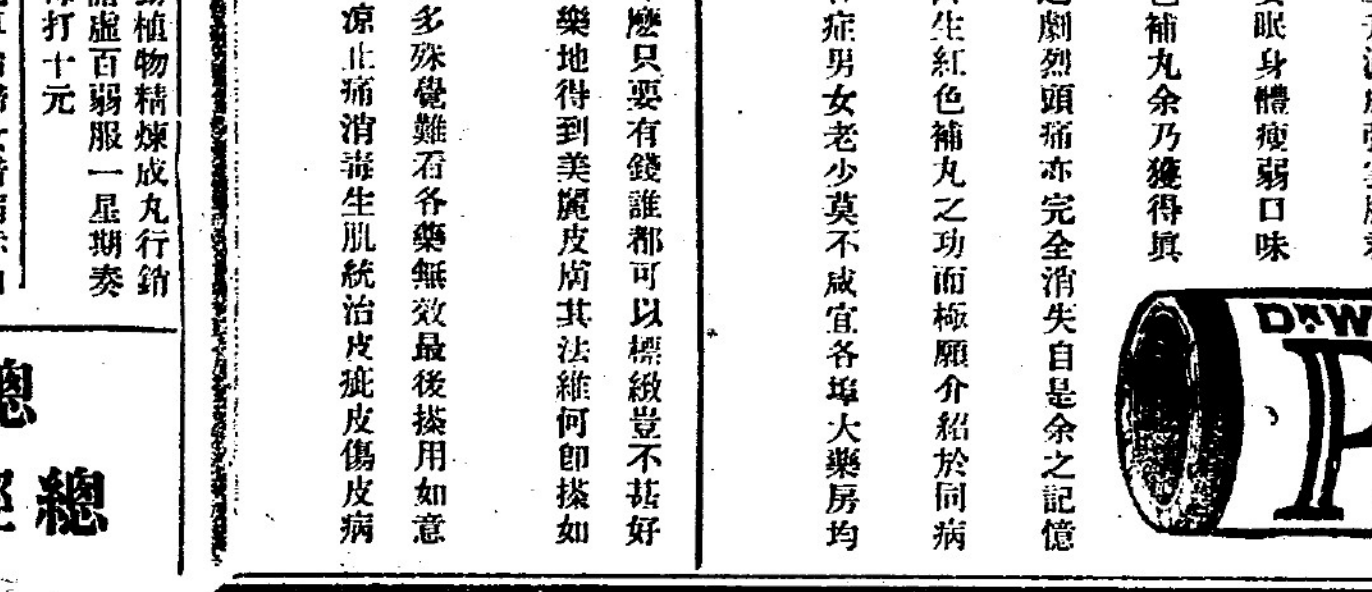 眠身體瘦弱口味
補丸余乃獲得眞
劇烈頭痛亦完全消失自是余之記憶
生紅色補丸之功而極願介紹於同病
症男女老少莫不咸宜各埠大藥房均
麽只要有錢誰都可以標緻豈不甚好
樂地得到美麗皮膚其法維何卽搽如
多殊覺難看各藥無效最後搽用如意
凉止痛消毒生肌統治皮疵皮傷皮病
動植物精煉成丸行銷
虛百弱服一星期奏
打十元
總
總
DR W
P